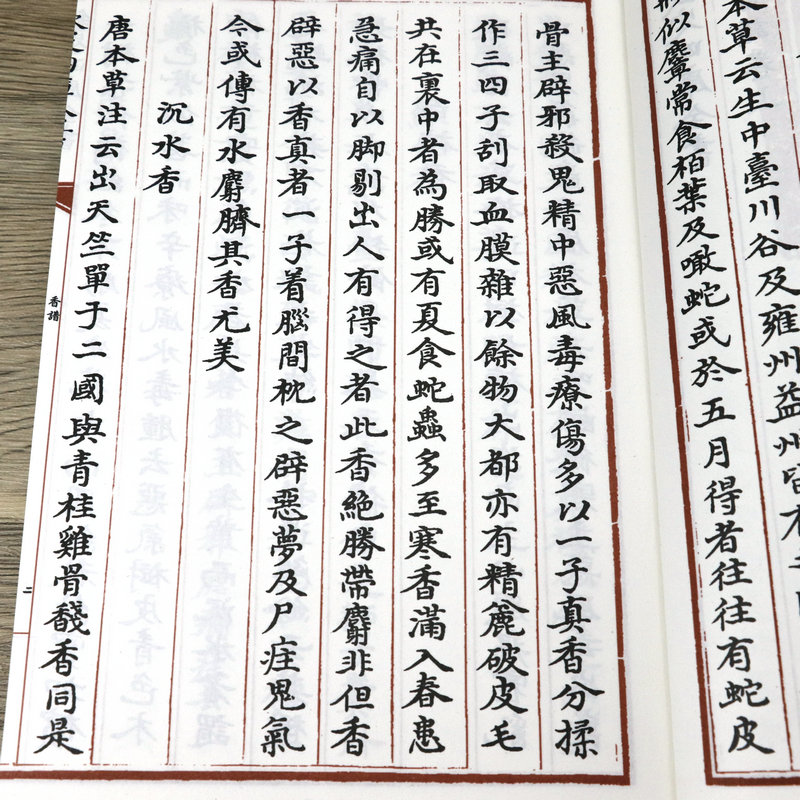 本草云生中臺川谷及雍州益州皆有
形似麞常食栢葉及噉蛇或於五月得者往往有蛇皮
骨主辟邪殺鬼精中惡風毒療傷多以一子真香分揉
作三四子刮取血膜雜以餘物大都亦有精麄破皮毛
共在裏中者為勝或有夏食蛇蟲多至寒香滿入春患
急痛自以脚剔出人有得之者此香絶勝帶麝非但香
辟惡以香真者一子着腦間枕之辟惡夢及尸疰鬼氣
今或傳有水麝臍其香尤美
沉水香
唐本草注云出天竺單于二國與青桂雞骨馢香同是
香譜
二